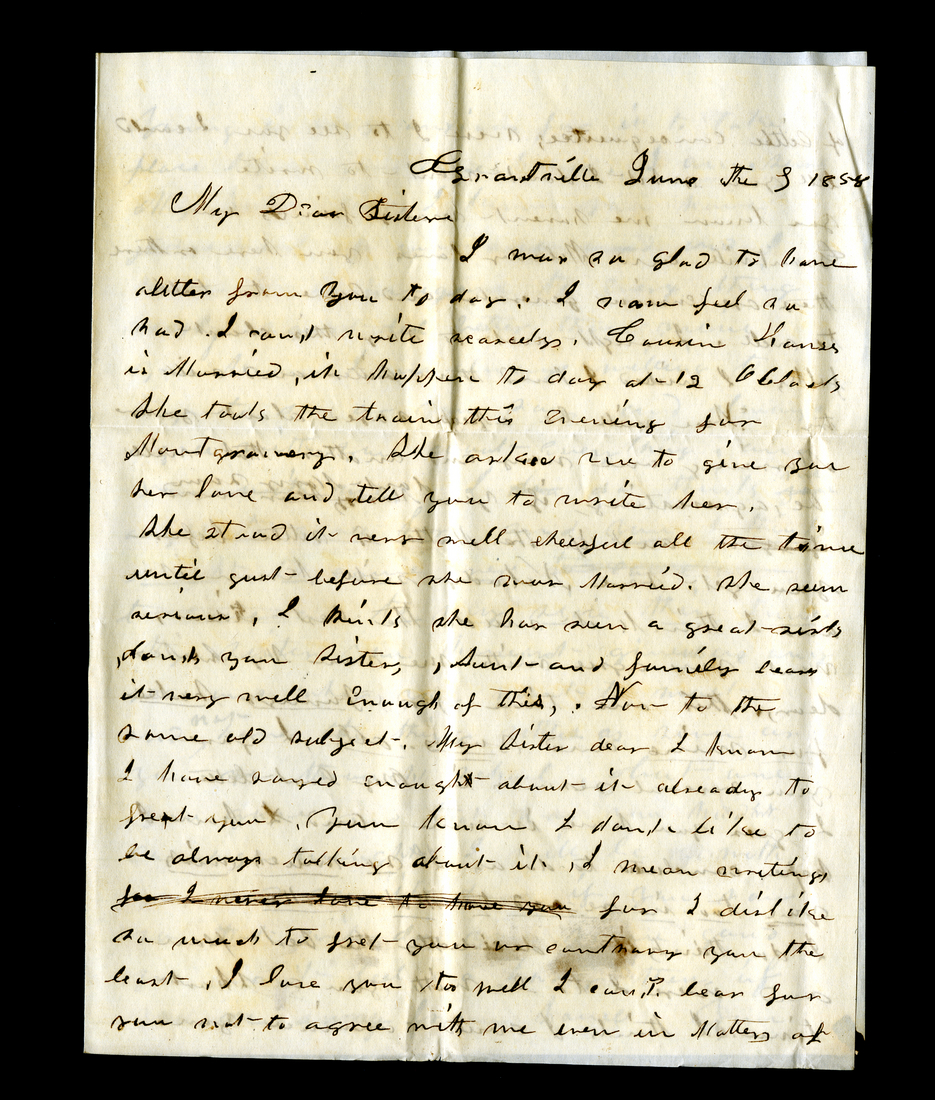 Grantville June the 9 1858
My Dear Sister
I was so glad to have
aletter from you to day. I now feel so
bad. I cant write scarcely. Cousin
is Married, it happen to day at 12 Oclock
She took the train this Evening for
Montgomery. She asked me to give you
her love and tell you to write her.
She stood it very well cheerful all the time
until gust before she was Married. She seem
serious, I think she has seen a great sight
dont you Sister, Aunt and family bears
it very well Enough of this, Now to the
same old subject. My Sister dear I know
I have sayed enought about it already to
fret you. You know I dont like to
be always talking about it, I mean writing
for I never love to have you for I dislike
so much to fret you or contrary you the
least, I love you too well I can't bear for
you not to agree with me even in Matters of